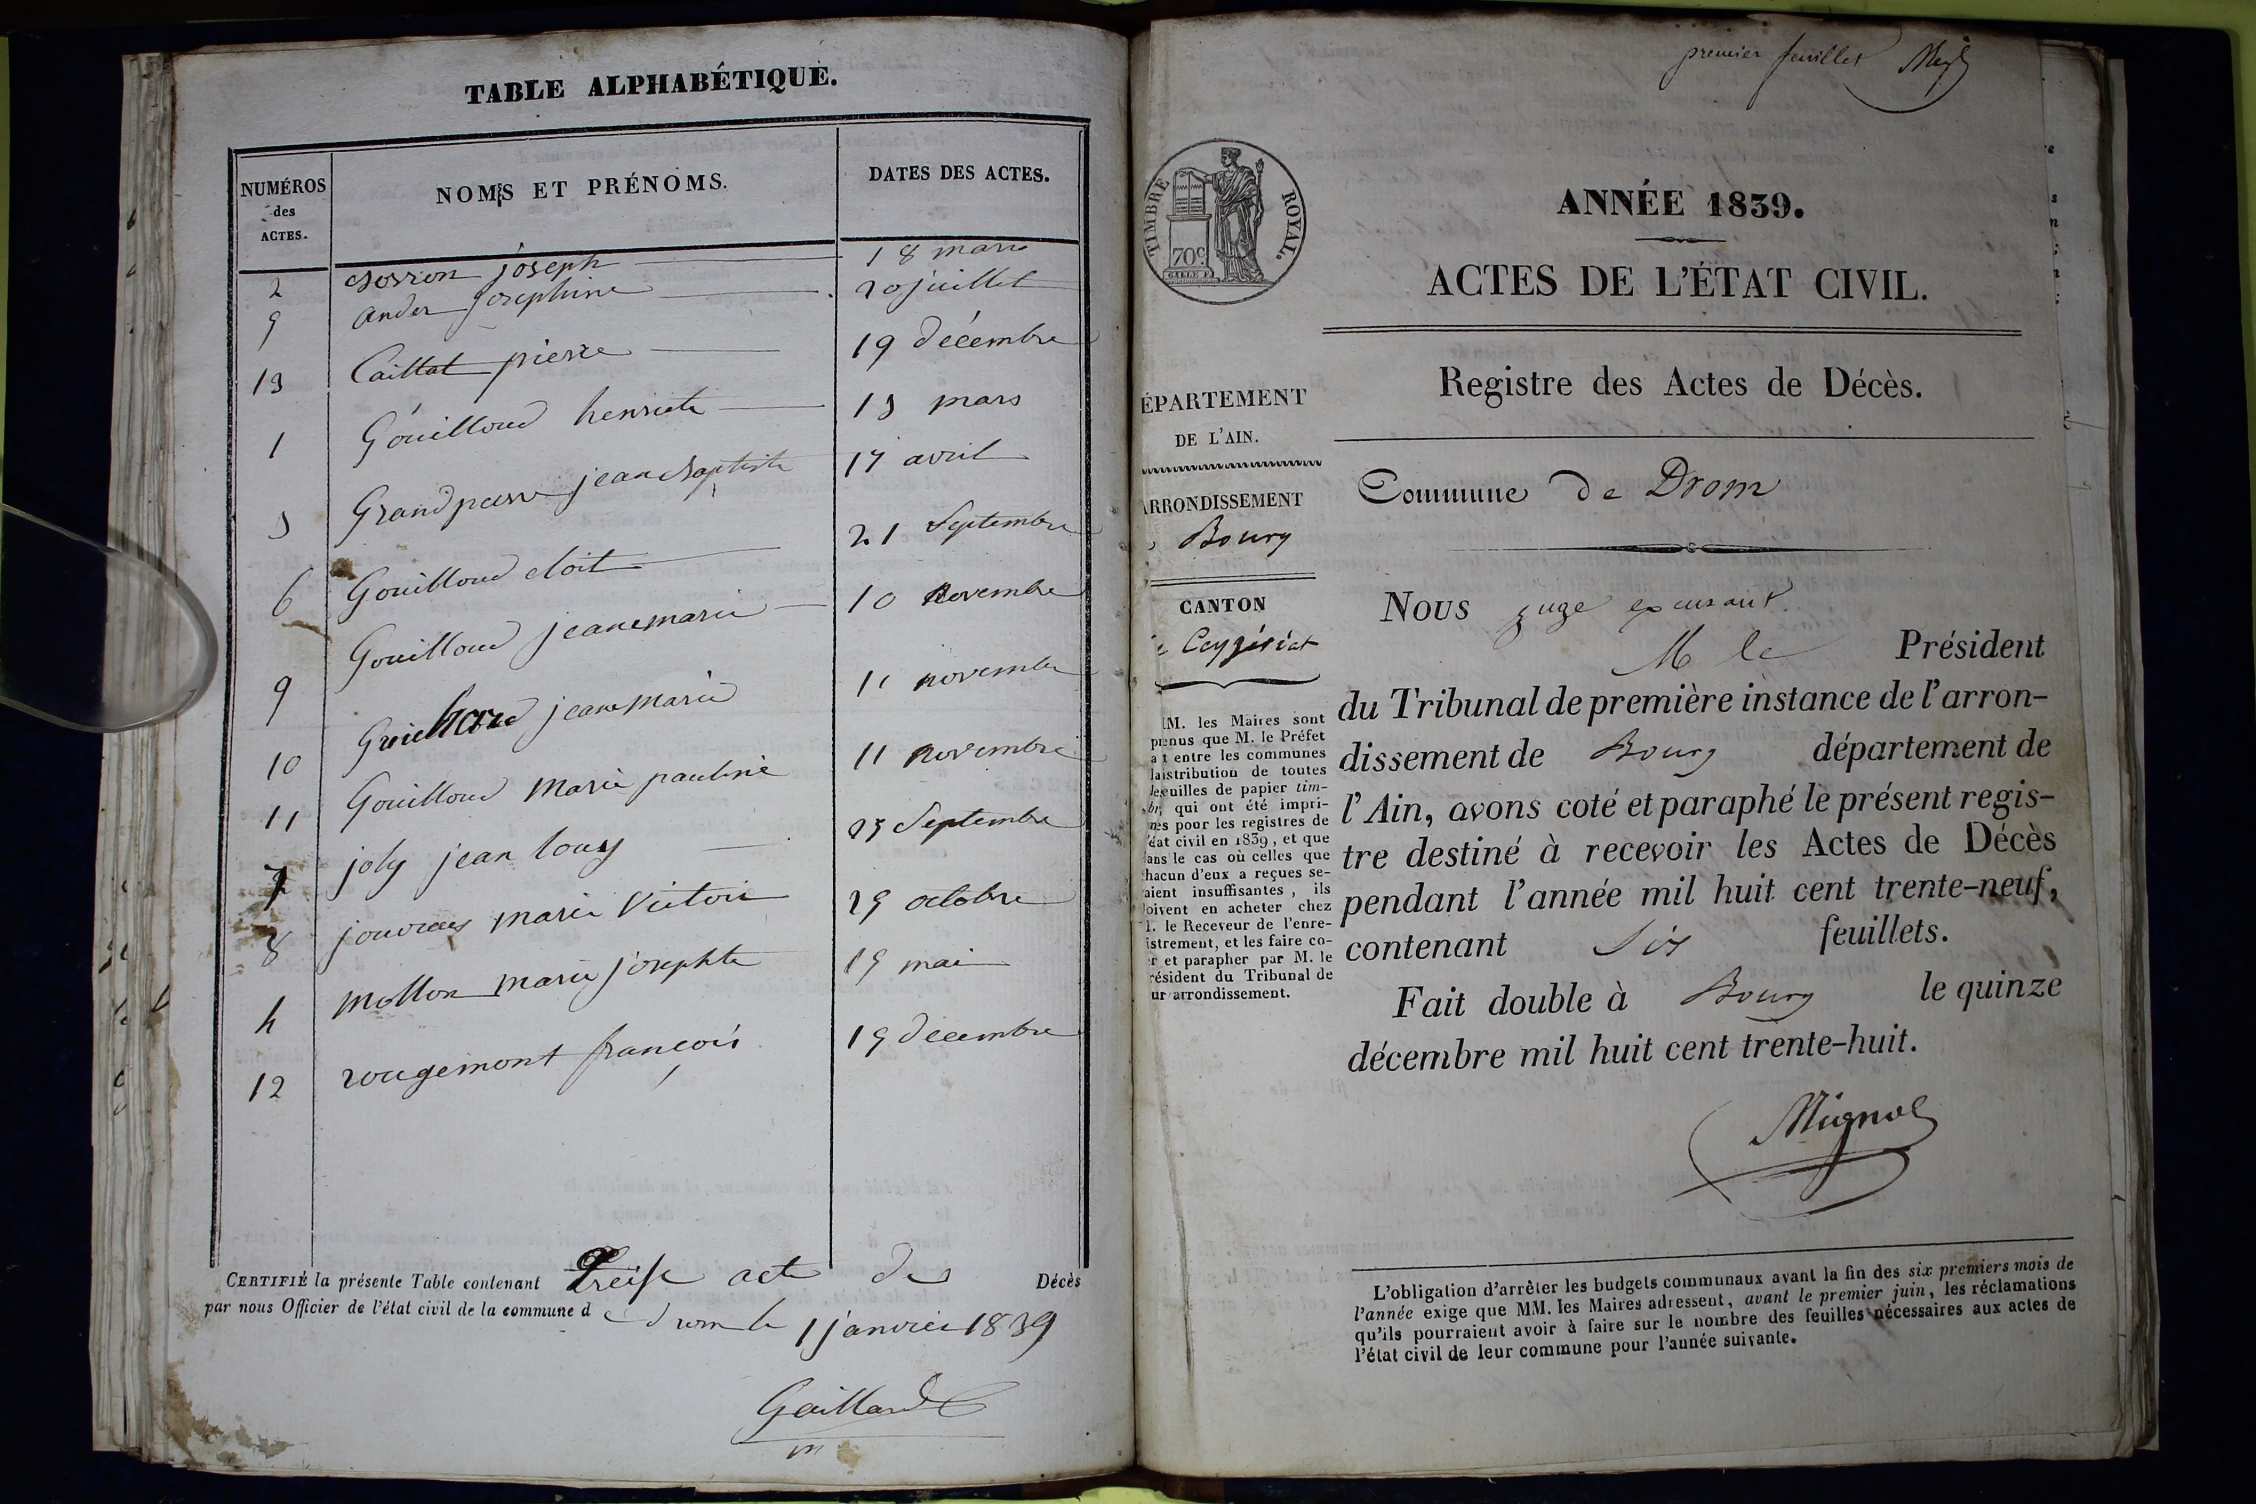 TABLE ALPHABÉTIQUE.
NUMÉROS des ACTES.
NOMS ET PRÉNOMS.
DATES DES ACTES.
2 joseph 18 mars
9 ander josephine 20 juillet
13 Caillat pierre 19 décembre
1 Gouilloud henriete 13 mars
3 Grandpierre jean baptiste 17 avril
6 Gouilloud eloit 21 Septembre
9 Gouilloud jeanemarie 10 novembre
10 jeanemarie 11 novembre
11 Gouilloud marie pauline 11 novembre
7 joly jean louy 23 Septembre
8 marie Victoire 29 octobre
4 mollon marie josephte 19 mai
12 rougemont françois 19 décembre
CERTIFIÉ la présente Table contenant treise acte de Décès
par nous Officier de l'état civil de la commune d drom le 1 janvier 1839
Gaillard
m
premier feuillet
TIMBRE ROYAL.
70c
ANNÉE 1839.
ACTES DE L'ÉTAT CIVIL.
Registre des Actes de Décès.
ÉPARTEMENT
DE L'AIN.
ARRONDISSEMENT
Bourg
CANTON
Ceyzériat
Commune de Drom
NOUS juge excusant
M le Président
du Tribunal de première instance de l'arron-
dissement de Bourg département de
l'Ain, avons coté et paraphé le présent regis-
tre destiné à recevoir les Actes de Décès
pendant l'année mil huit cent trente-neuf,
contenant Six feuillets.
Fait double à Bourg le quinze
décembre mil huit cent trente-huit.
Mignot
M. les Maires sont
prenus que M. le Préfet
a t entre les communes
la istribution de toutes
les euilles de papier tim-
br qui ont été impri-
mes pour les registres de
l'éat civil en 1839, et que
ans le cas où celles que
hacun d'eux a reçues se-
aient insuffisantes, ils
oivent en acheter chez
. le Receveur de l'enre-
istrement, et les faire co-
r et parapher par M. le
résident du Tribunal de
ur arrondissement.
L'obligation d'arrêter les budgets communaux avant la fin des six premiers mois de
l'année exige que MM. les Maires adressent, avant le premier juin, les réclamations
qu'ils pourraient avoir à faire sur le nombre des feuilles nécessaires aux actes de
l'état civil de leur commune pour l'année suivante.